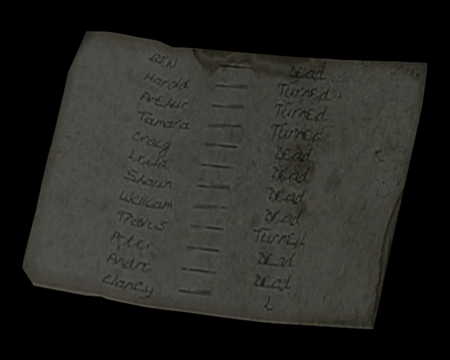 BEN — DEad
Harold — TurnEd
Arthur — TurnEd
Tamara — TurnEd
Craig — DEad
— DEad
Shaun — DEad
William — DEad
Travis — TurnEd
— DEad
Andre — DEad
Clancy — L